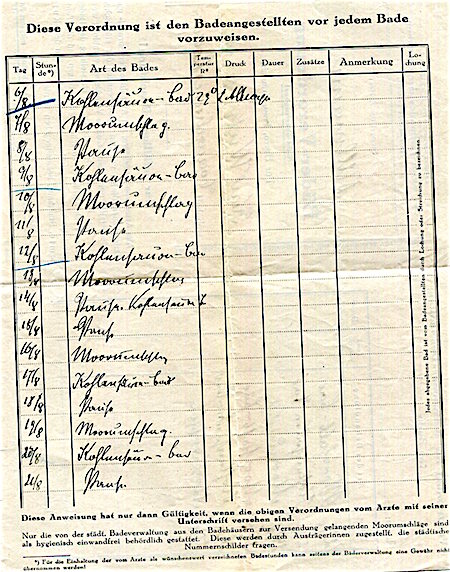 Diese Verordnung ist den Badeangestellten vor jedem Bade
vorzuweisen.
Tag Stunde*) Art des Bades Temperatur R° Druck Dauer Zusätze Anmerkung Lochung
6/8 Kohlensäure-bad 29°
7/8 Moorumschlag.
8/8 Pause
9/8 Kohlensäure-bad
10/8 Moorumschlag
11/8 Pause
12/8 Kohlensäure-bad
13/8 Moorumschlag
14/8 Pause Kohlensäure
15/8 Pause
16/8 Moorumschlag
17/8 Kohlensäure-bad
18/8 Pause
19/8 Moorumschlag.
20/8 Kohlensäure-bad
21/8 Pause
Jedes abgegebene Bad ist vom Badeangestellten durch Lochung oder Streichung zu bezeichnen.
Diese Anweisung hat nur dann Gültigkeit, wenn die obigen Verordnungen vom Arzte mit seiner
Unterschrift versehen sind.
Nur die von der städt. Badeverwaltung aus den Badehäusern zur Versendung gelangenden Moorumschläge sind
als hygienisch einwandfrei behördlich gestattet. Diese werden durch Austrägerinnen zugestellt, die städtische
Nummernschilder tragen.
*) Für die Einhaltung der vom Arzte als wünschenswert verzeichneten Badestunden kann seitens der Badeverwaltung eine Gewähr nicht
übernommen werden!